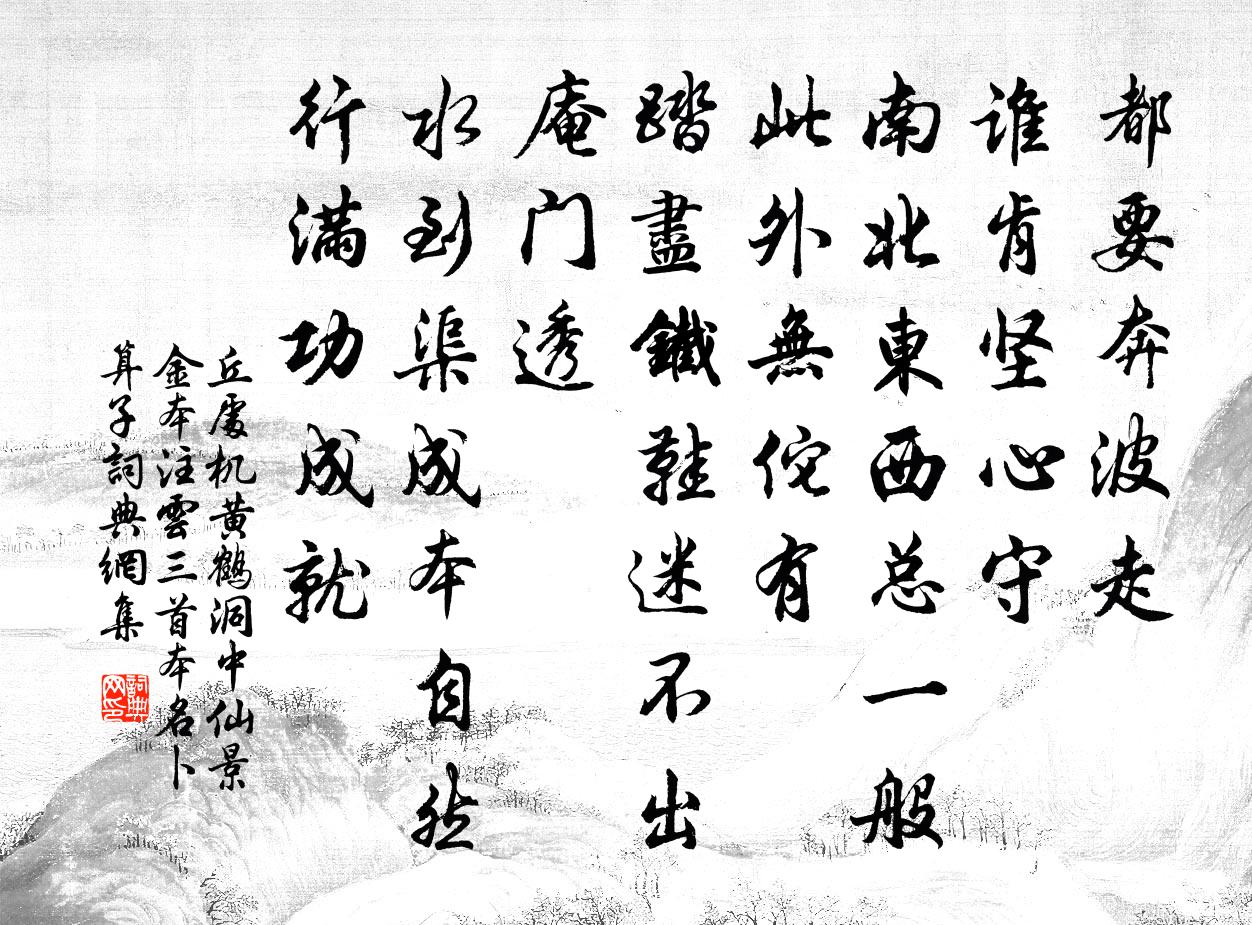 都要奔波走
谁肯坚心守
南北東西总一般
此外無佗有
踏盡鐵鞋迷不出
庵门透
水到渠成本自然
行满功成就
丘處机黄鶴洞中仙景
金本注雲三首本名卜
算子詞典網集
詞典
网印